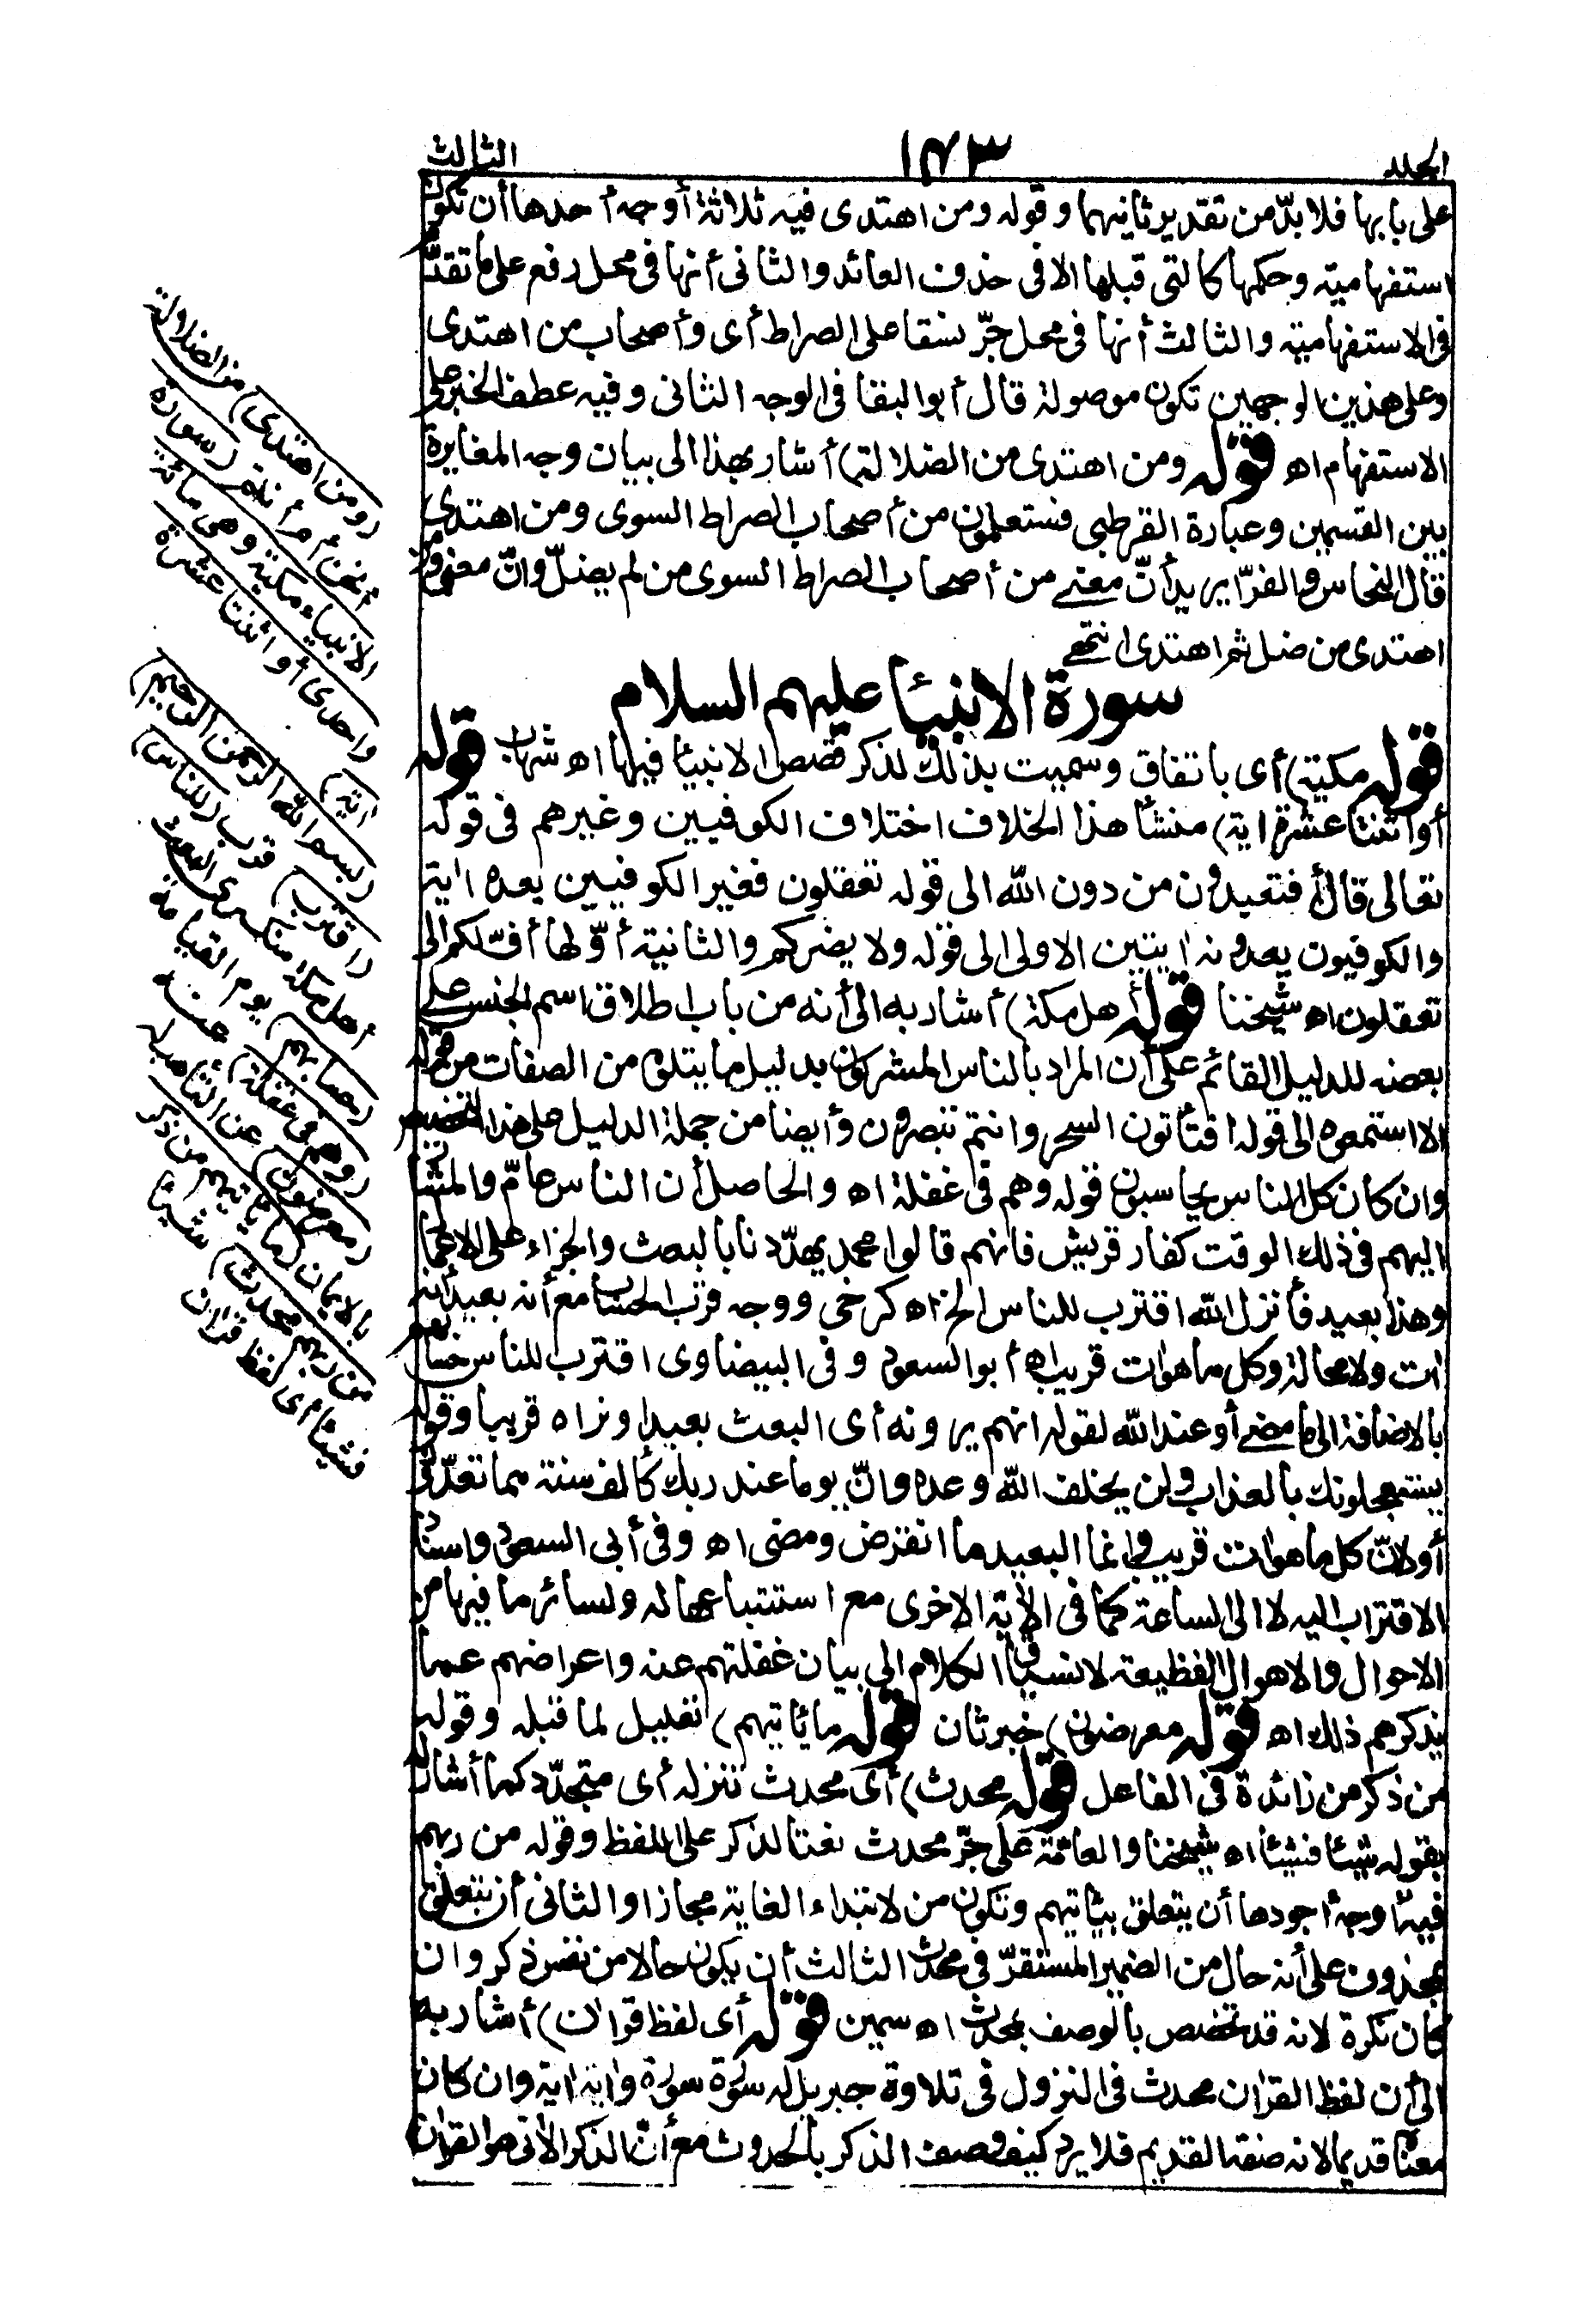 الجلد
١٤٣
الثالث
على بابها فلا بدّ من تقدير ثانيهما وقوله ومن اهتدى فيه ثلاثة أوجه أحدها أن تكون
استفهامية وحكمها كالتى قبلها الا فى حذف العائد والثانى أنها فى محل رفع على ما تقدّم
فى الاستفهامية والثالث أنها فى محل جرّ نسقا على الصراط أى وأصحاب من اهتدى
وعلى هذين الوجهين تكون موصولة قال أبو البقا فى الوجه الثانى وفيه عطف الخبر على
الاستفهام اه قوله ومن اهتدى من الضلالة) أشار بهذا الى بيان وجه المغايرة
بين القسمين وعبارة القرطبى فستعلمون من أصحاب الصراط السوى ومن اهتدى
قال النحاس والفرّا يريد أنّ معنى من أصحاب الصراط السوى من لم يضلّ وانّ معنى ومن
اهتدى من ضل ثم اهتدى انتهى
سورة الانبيا عليهم السلام
قوله مكية) أى باتفاق وسميت بذلك لذكر قصص الانبيا فيها اه شهاب قوله
أو اثنتا عشرة اية) منشأ هذا الخلاف اختلاف الكوفيين وغيرهم فى قوله
تعالى قال أفتعبدون من دون الله الى قوله تعقلون فغير الكوفيين يعده اية
والكوفيون يعدونه ايتين الاولى الى قوله ولا يضركم والثانية أوّلها أفّ لكم الى
تعقلون اه شيخنا قوله أهل مكة) أشار به الى أنه من باب اطلاق اسم الجنس على
بعضه للدليل القائم على أن المراد بالناس المشركون بدليل ما يتلوه من الصفات من قوله
الا استمعوه الى قوله افتأتون السحر وانتم تبصرون وأيضا من جملة الدليل على هذا التخصيص
وان كان كل الناس يحاسبون قوله وهم فى غفلة اه والحاصل أن الناس عامّ والمشار
اليهم فى ذلك الوقت كفار قريش فانهم قالوا محمد يهدّدنا بالبعث والجزاء على الاعمال
وهذا بعيد فأنزل الله اقترب للناس الخ اه كرخى ووجه قرب الحساب مع أنه بعيد أنه
ات ولا محالة وكل ما هوات قريب اه أبو السعود وفى البيضاوى اقترب للناس حسابهم
بالاضافة الى ما مضى أو عند الله لقوله انهم يرونه أى البعث بعيدا ونراه قريبا وقوله
يستعجلونك بالعذاب ولن يخلف الله وعده وانّ يوما عند ربك كألف سنة مما تعدّون
أو لانّ كل ما هوات قريب وانما البعيد ما انقرض ومضى اه وفى أبى السعود واسناد
الاقتراب اليه لا الى الساعة كما فى الأية الاخرى مع استتباعها له ولسائر ما فيها من
الاحوال والاهوال الفظيعة لانسياق الكلام الى بيان غفلتهم عنه واعراضهم عما
يذكرهم ذلك اه قوله معرضون) خبر ثان قوله ما يأتيهم) تعليل لما قبله وقوله
من ذكر من زائدة فى الفاعل قوله محدث) أى محدث تنزله أى متجدّد كما أشار له
بقوله شيئا فشيئا اه شيخنا والعامّة على جرّ محدث نعتا لذكر على اللفظ وقوله من ربهم
فيه أوجه أجودها أن يتعلق بيأتيهم وتكون من لابتداء الغاية مجازا والثانى أن يتعلق
بمحذوف على أنه حال من الضمير المستقرّ فى محدث الثالث أن يكون حالا من نفس ذكر وان
كان نكرة لانه قد تخصص بالوصف بمحدث اه سمين قوله أى لفظ قران) أشار به
الى أن لفظ القران محدث فى النزول فى تلاوة جبريل له سورة سورة واية اية وان كان
معناه قديما لانه صفة القديم فلا يرد كيف وصف الذكر بالحدوث مع أنّ الذكر الأتى هو القران
(ومن اهتدى) من الضلالة
أنحن أم أنتم (سورة
الانبياء مكية وهى مائة
واحدى أو اثنتا عشرة
اية)
(بسم الله الرحمن الرحيم)
(اقترب) قرب (للناس)
أهل مكة منكرى البعث
(حسابهم) يوم القيامة
(وهم فى غفلة) عنه
(معرضون) عن التأهب له
بالايمان (ما يأتيهم من ذكر
من ربهم محدث) شيئا
فشيئا أى لفظ قران